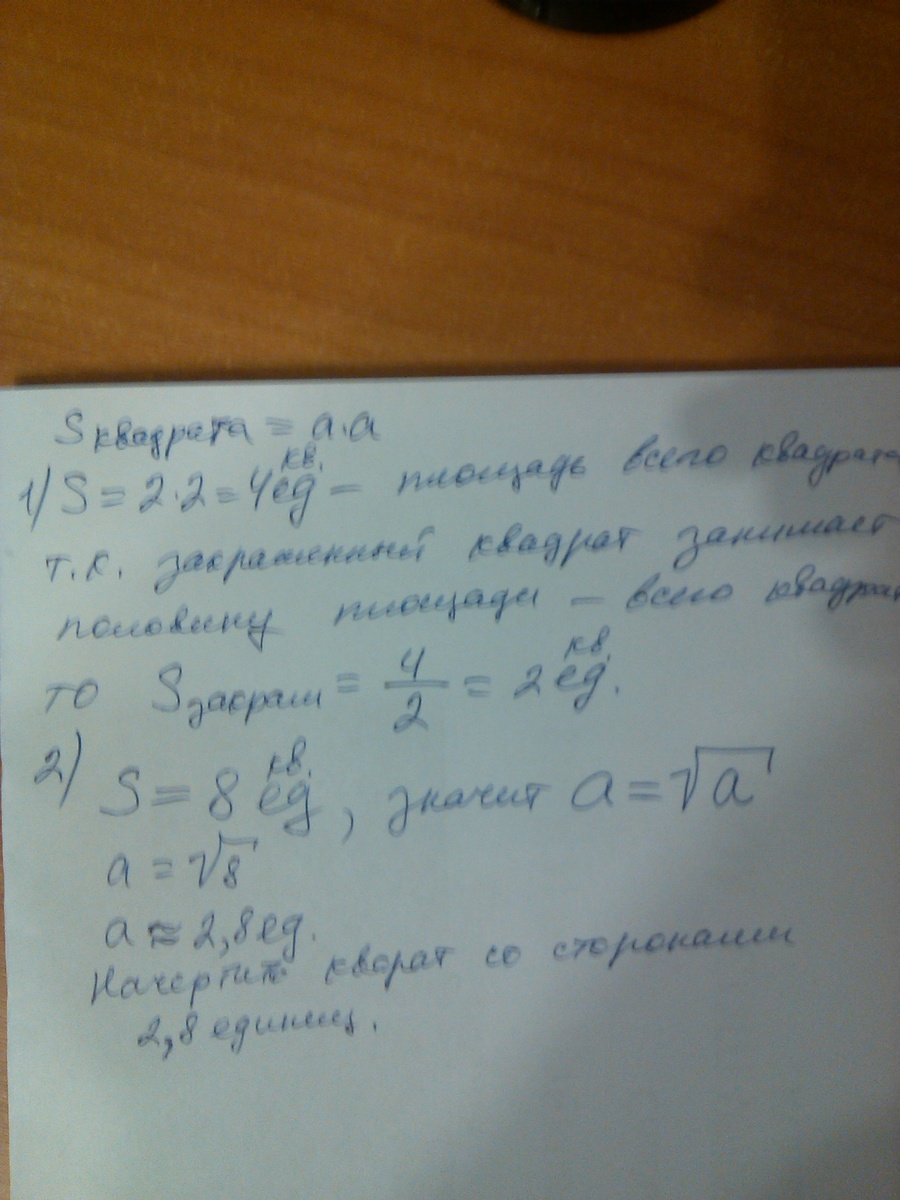 S квадрата = a·a
1) S = 2·2 = 4 кв. ед – площадь всего квадрата
т.к. закрашенный квадрат занимает
половину площади – всего квадрат
то S закраш = 4/2 = 2 кв. ед.
2) S = 8 кв. ед, значит a = √a
a = √8
a ≈ 2,8 ед.
Начертите кворат со сторонами
2,8 единиц.